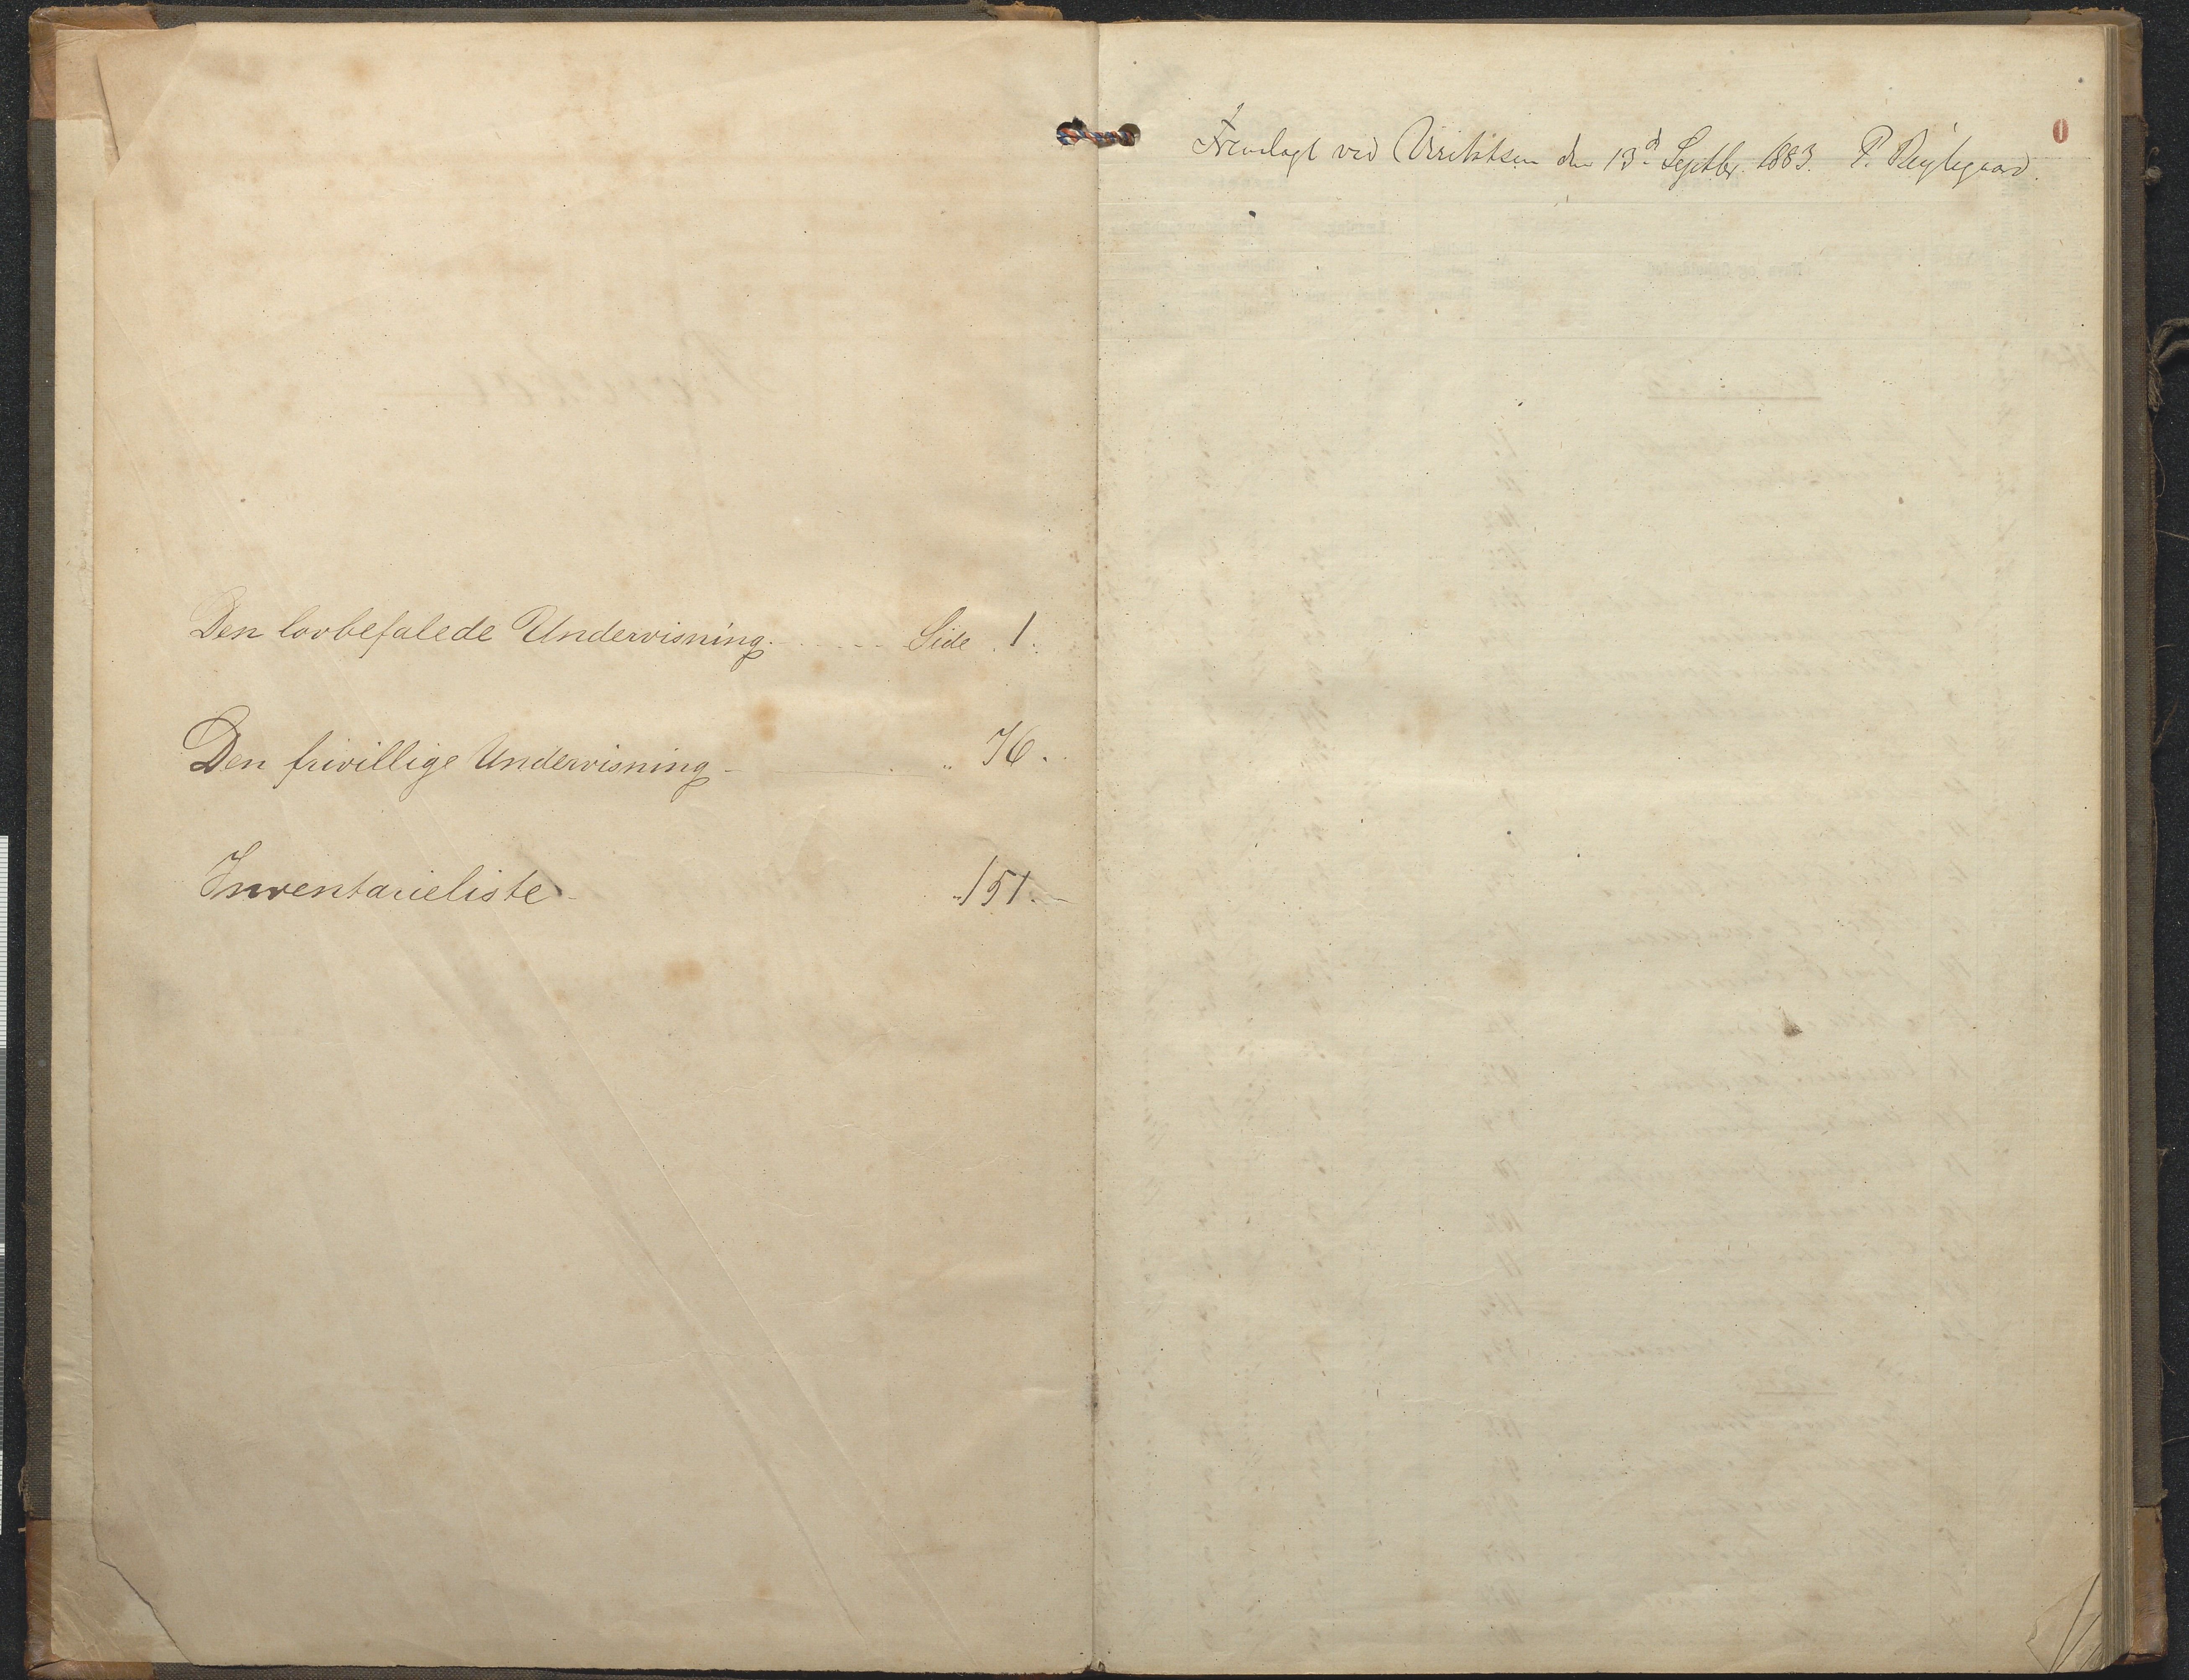 Den lovbefalede Undervisning. ..... Side 1.
Den frivillige Undervisning - " 76.
Inventarieliste - " 151. -
Fremlagt ved Visitatsen den 13d Septbr. 1883. P.
0